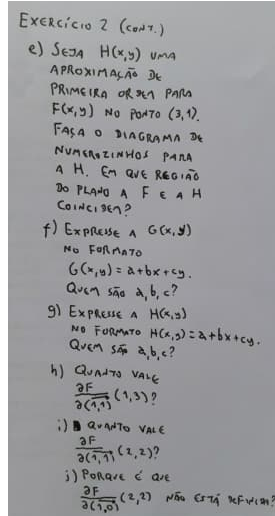 EXERCÍCIO 2 (CONT.)
e) SEJA H(x,y) UMA
APROXIMAÇÃO DE
PRIMEIRA ORDEM PARA
F(x,y) NO PONTO (3,1).
FAÇA O DIAGRAMA DE
NUMEROZINHOS PARA
A H. EM QUE REGIÃO
DO PLANO A F E A H
COINCIDEM?
f) EXPRESSE A G(x,y)
NO FORMATO
G(x,y)=a+bx+cy.
QUEM SÃO a,b,c?
g) EXPRESSE A H(x,y)
NO FORMATO H(x,y)=a+bx+cy.
QUEM SÃO a,b,c?
h) QUANTO VALE
∂F/∂(1,1) (1,3)?
i) QUANTO VALE
∂F/∂(1,1) (2,2)?
j) PORQUE É QUE
∂F/∂(1,0) (2,2) NÃO ESTÁ DEFINIDA?